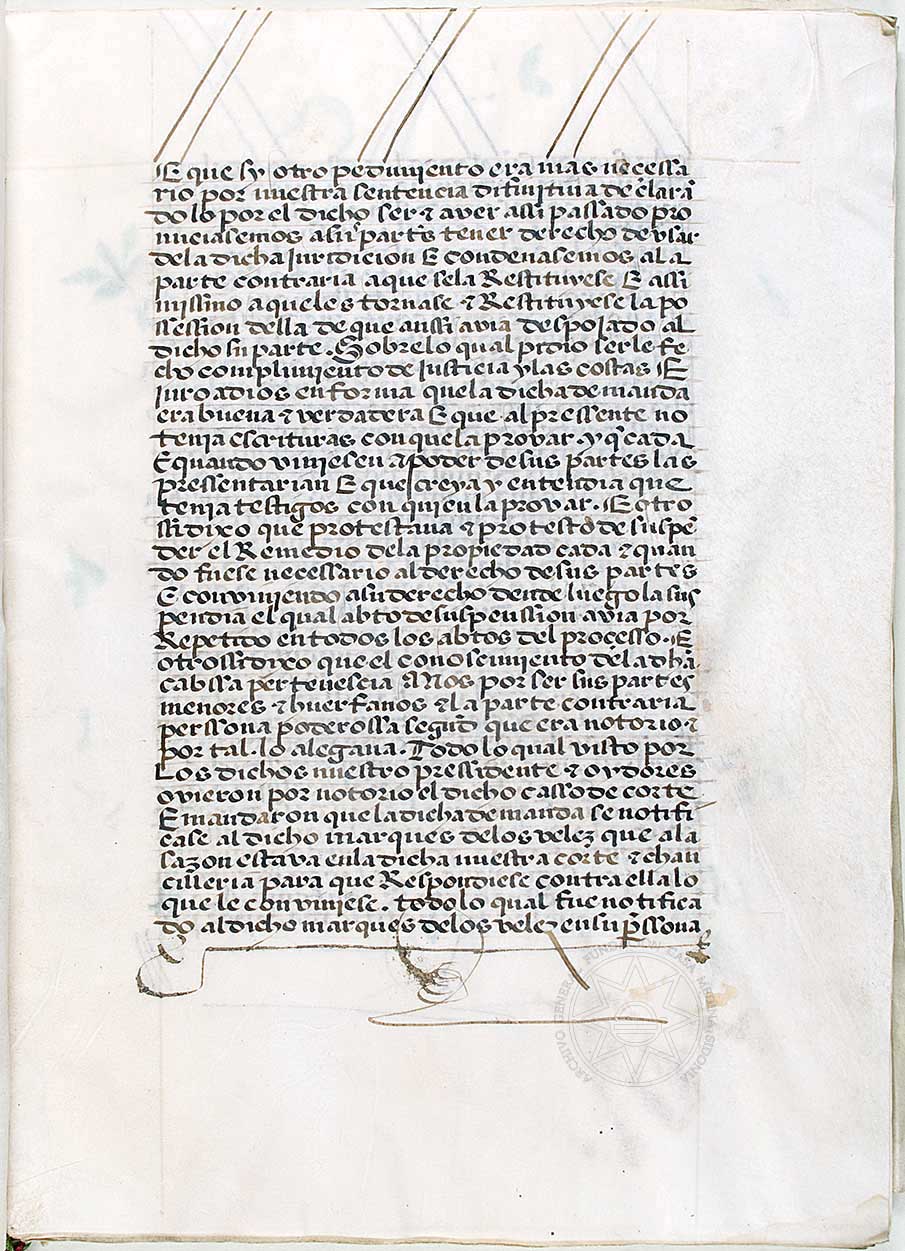 E que sy otro pedimiento era mas neçessa
rio por nuestra sentencia difinitiua declarã
do lo por el dicho ser & aver assi passado pro
nunciasemos a su parte tener derecho de vsar
dela dicha Jurdicion E condenasemos ala
parte contraria a que sela Restituyese E assi
missmo a que les tornase & Restituyese la po
session della de que anssi avia despojado al
dicho su parte. Sobre lo qual pidio serle fe
cho complimiento de Justicia y las costas E
Juro a dios en forma que la dicha demanda
era buena & verdadera E que al pressente no
tenia escrituras con que la provar. y q̃ cada
E quando viniesen a poder de sus partes las
pressentarian E que creya y entendia que
tenia testigos con quien la provar. E otro
ssi dixo que protestaua & protesto de suspẽ
der el Remedio dela propiedad cada & quan
do fuese necessario al derecho de sus partes
E conviniendo a su derecho dende luego la sus
pendia el qual abto de suspenssion avia por
Repetido en todos los abtos del processo. E
otrossi dixo que el conoscimiento dela dhã
cabssa pertenescia A nos por ser sus partes
menores & huerfanos & la parte contraria
perssona poderossa segund que era notorio &
por tal lo alegaua. Todo lo qual visto por
Los dichos nuestro pressidente & oydores
ovieron por notorio el dicho casso de corte
E mandaron que la dicha demanda se notifi
case al dicho marques delos velez que ala
sazon estava en la dicha nuestra corte & chan
cilleria para que Respondiese contra ella lo
que le conviniese. todo lo qual fue notifica
do al dicho marques delos velez en su p̃ssona
ARCHIVO GENERAL FUNDACIÓN CASA MEDINA SIDONIA